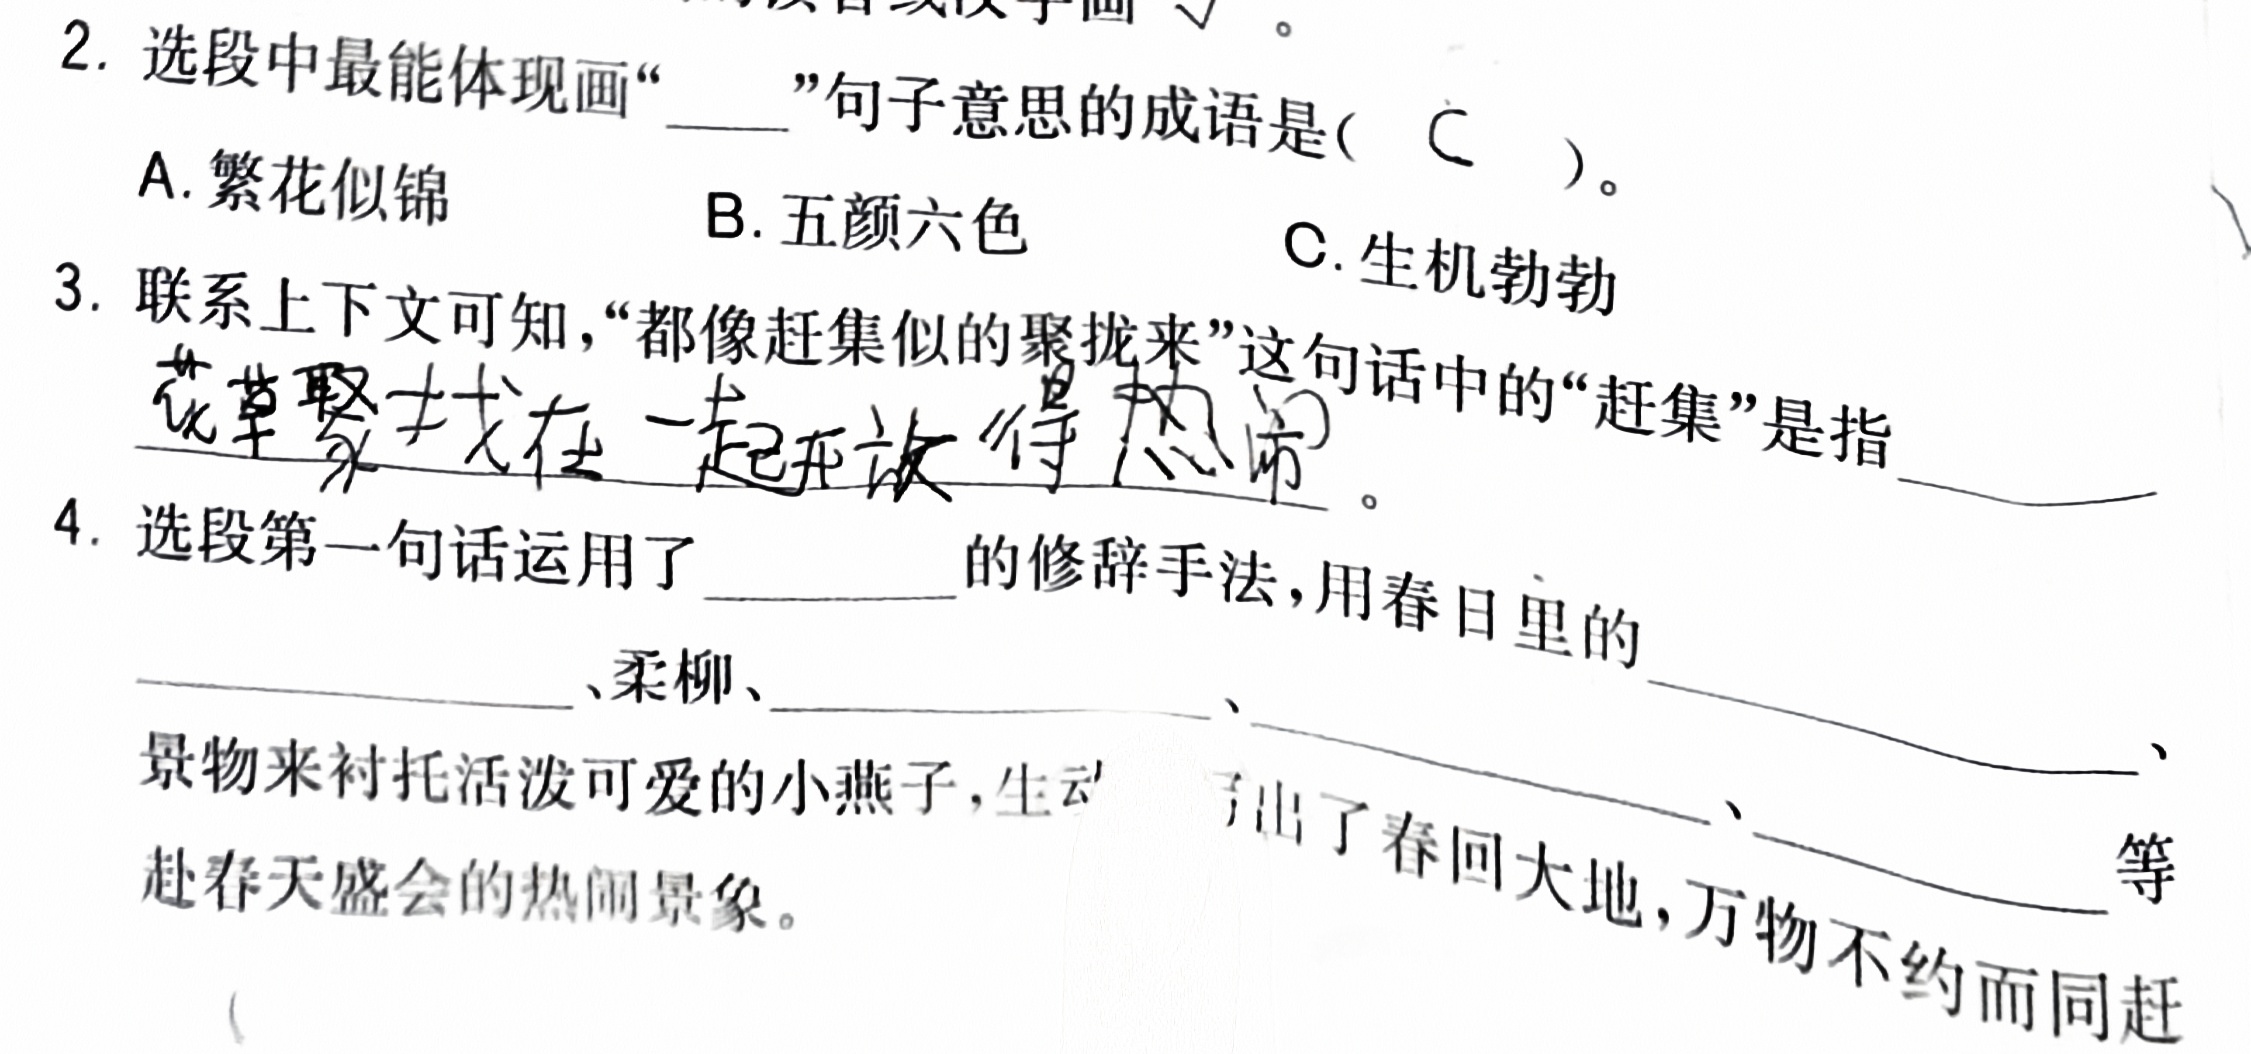 2. 选段中最能体现画“____”句子意思的成语是( C )。
A. 繁花似锦 B. 五颜六色 C. 生机勃勃
3. 联系上下文可知,“都像赶集似的聚拢来”这句话中的“赶集”是指____
花草聚找在一起开放得热闹。
4. 选段第一句话运用了____的修辞手法,用春日里的____、
____、柔柳、____、____、____等
景物来衬托活泼可爱的小燕子,生动 出了春回大地,万物不约而同赶
赴春天盛会的热闹景象。